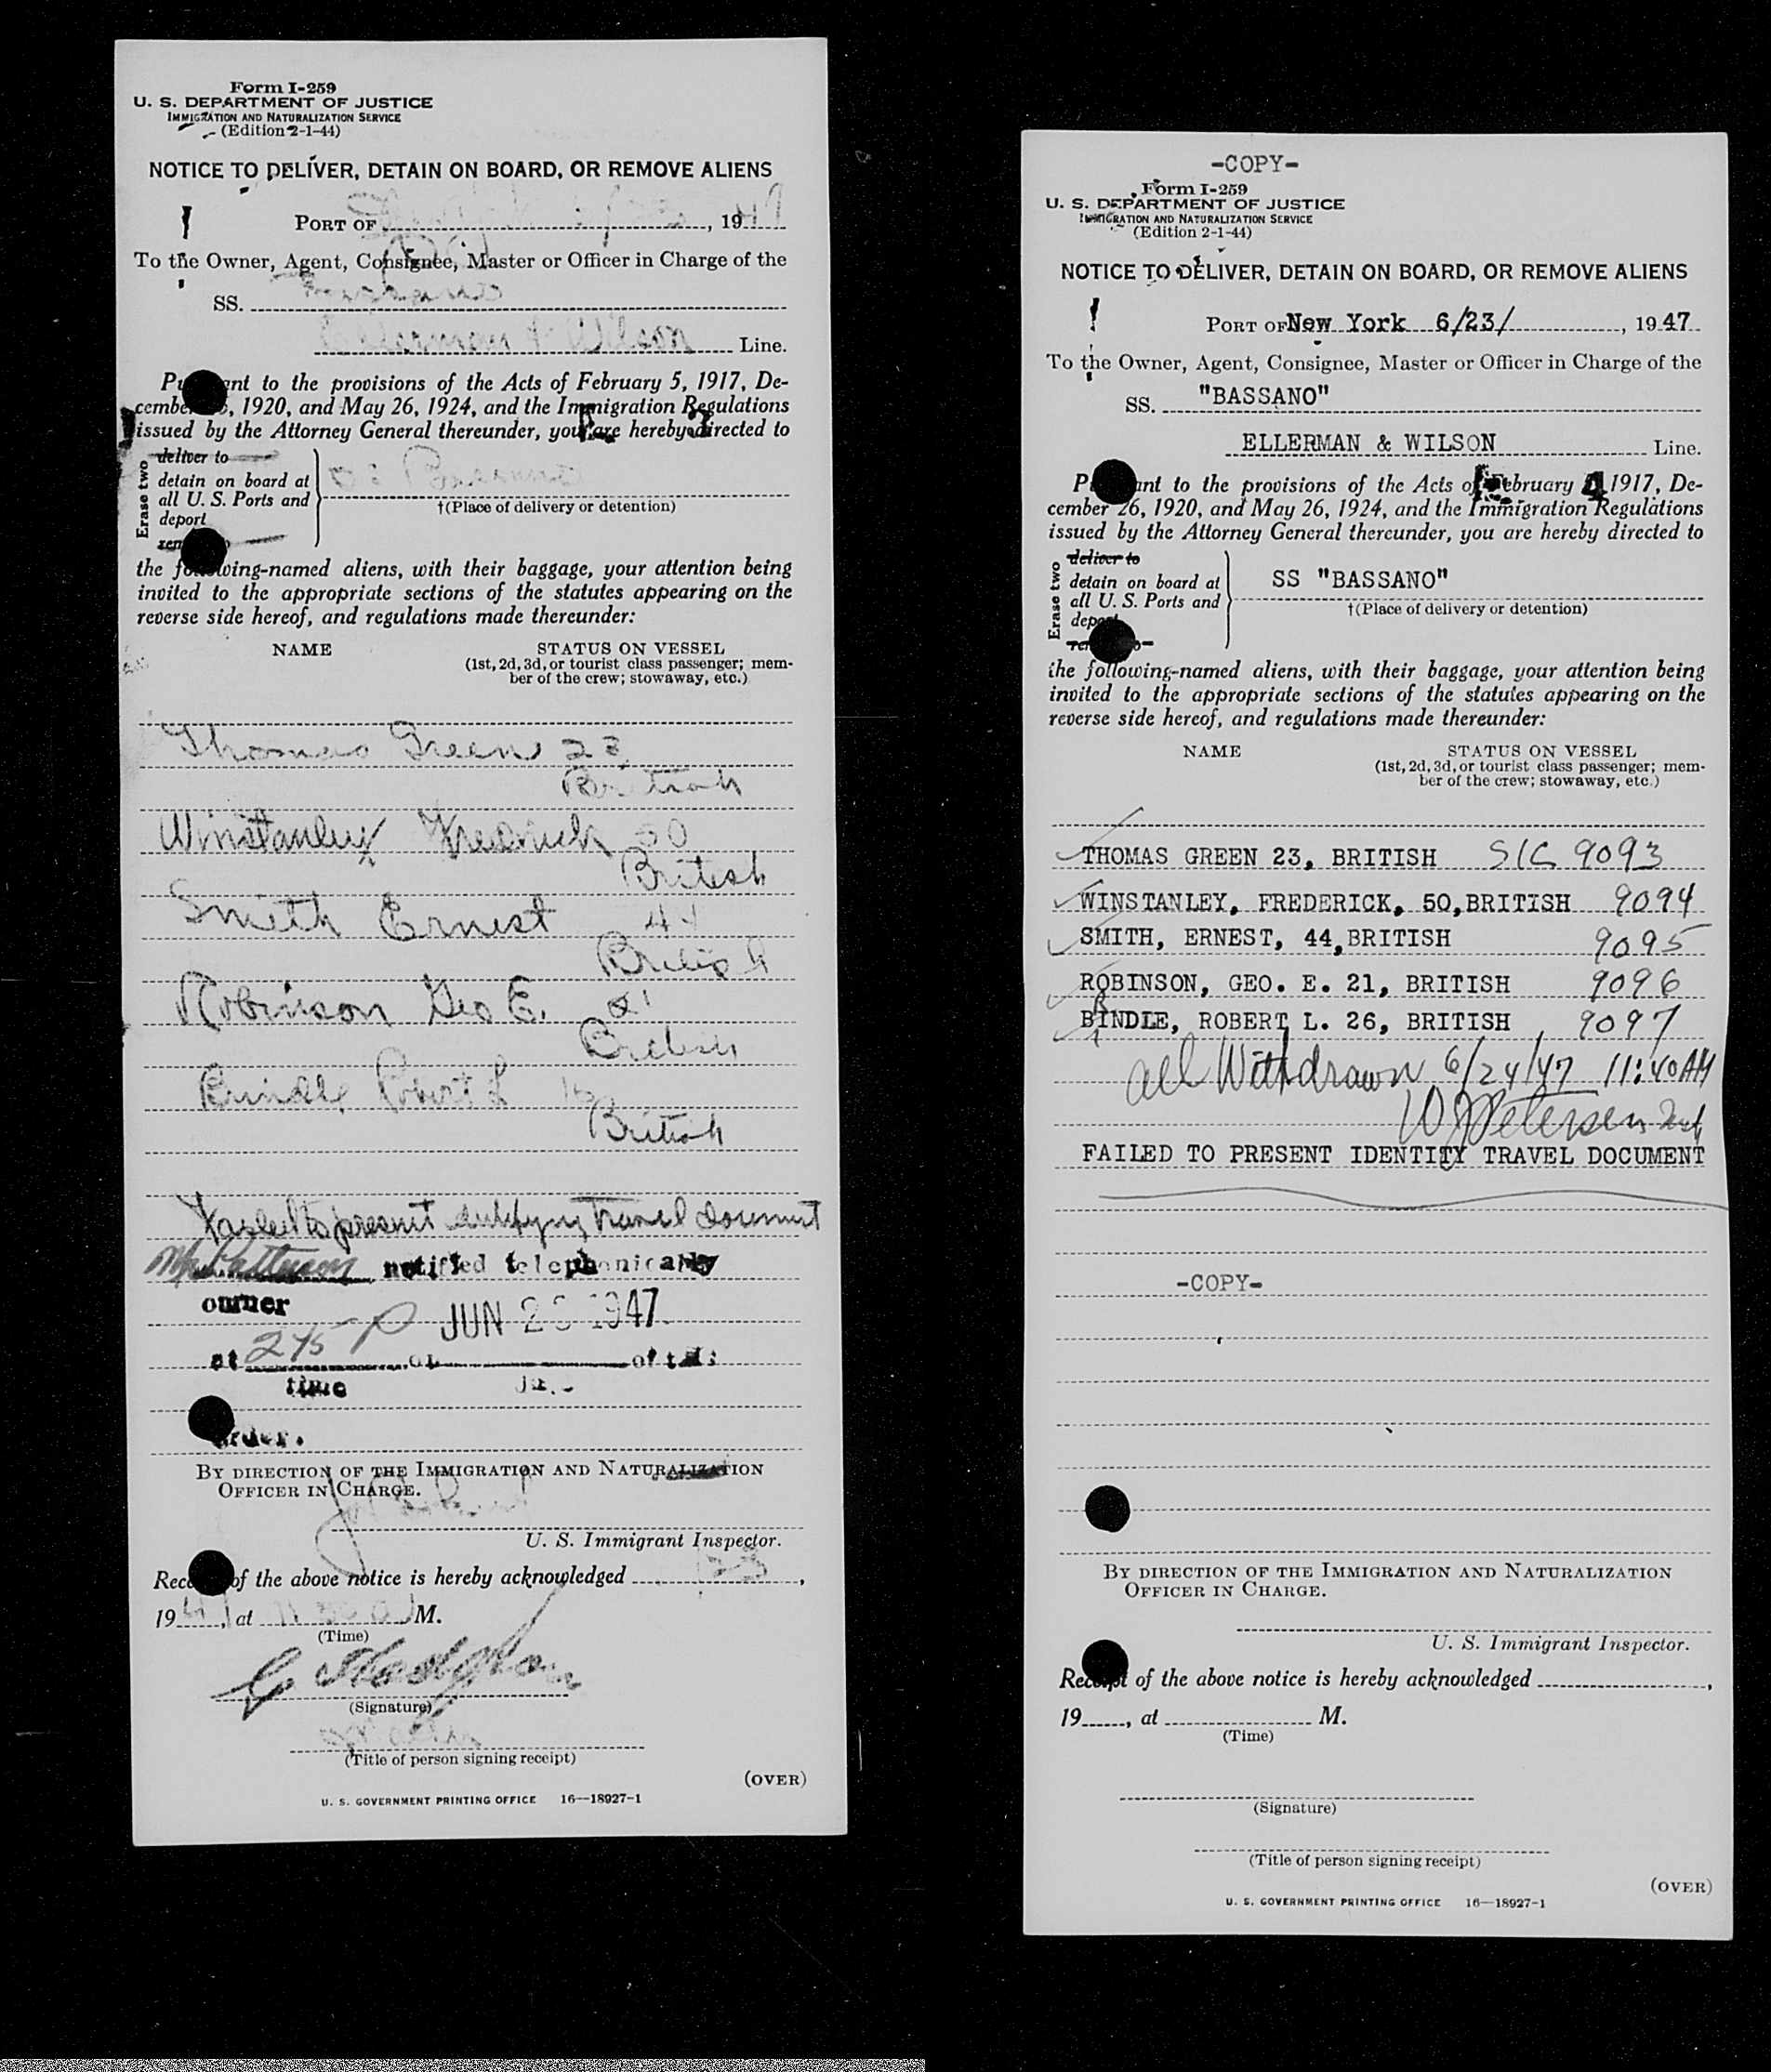 Form I-259
U. S. DEPARTMENT OF JUSTICE
IMMIGRATION AND NATURALIZATION SERVICE
(Edition 2-1-44)
NOTICE TO DELIVER, DETAIN ON BOARD, OR REMOVE ALIENS
PORT OF , 1947
To the Owner, Agent, Consignee, Master or Officer in Charge of the
SS. Bassano
Ellerman & Wilson Line.
Pursuant to the provisions of the Acts of February 5, 1917, De-
cember 26, 1920, and May 26, 1924, and the Immigration Regulations
issued by the Attorney General thereunder, you are hereby directed to
Erase two
deliver to
detain on board at
all U. S. Ports and
deport
remove to
SS Bassano
†(Place of delivery or detention)
the following-named aliens, with their baggage, your attention being
invited to the appropriate sections of the statutes appearing on the
reverse side hereof, and regulations made thereunder:
NAME STATUS ON VESSEL
(1st, 2d, 3d, or tourist class passenger; mem-
ber of the crew; stowaway, etc.)
Thomas Green 23
British
Winstanley Fredrick 50
British
Smith Ernest 44
British
Robinson Geo E. 21
British
Brindle, Robert L
British
Failed to present identifying travel document
Mr Patterson notified telephonically
owner
at 245 P on JUN 23 1947 of this
time
order.
BY DIRECTION OF THE IMMIGRATION AND NATURALIZATION
OFFICER IN CHARGE.
U. S. Immigrant Inspector.
Receipt of the above notice is hereby acknowledged
1947, at M.
(Time)
(Signature)
(Title of person signing receipt)
(OVER)
U. S. GOVERNMENT PRINTING OFFICE 16—18927-1
-COPY-
Form I-259
U. S. DEPARTMENT OF JUSTICE
IMMIGRATION AND NATURALIZATION SERVICE
(Edition 2-1-44)
NOTICE TO DELIVER, DETAIN ON BOARD, OR REMOVE ALIENS
PORT OF New York 6/23/ , 1947
To the Owner, Agent, Consignee, Master or Officer in Charge of the
SS. "BASSANO"
ELLERMAN & WILSON Line.
Pursuant to the provisions of the Acts of February 1917, De-
cember 26, 1920, and May 26, 1924, and the Immigration Regulations
issued by the Attorney General thereunder, you are hereby directed to
Erase two
deliver to
detain on board at
all U. S. Ports and
deport
remove to
SS "BASSANO"
†(Place of delivery or detention)
the following-named aliens, with their baggage, your attention being
invited to the appropriate sections of the statutes appearing on the
reverse side hereof, and regulations made thereunder:
NAME STATUS ON VESSEL
(1st, 2d, 3d, or tourist class passenger; mem-
ber of the crew; stowaway, etc.)
THOMAS GREEN 23, BRITISH S/C 9093
WINSTANLEY, FREDERICK, 50, BRITISH 9094
SMITH, ERNEST, 44, BRITISH 9095
ROBINSON, GEO. E. 21, BRITISH 9096
R
BINDLE, ROBERT L. 26, BRITISH 9097
All Withdrawn 6/24/47 11:40 AM
W J Petersen
FAILED TO PRESENT IDENTITY TRAVEL DOCUMENT
-COPY-
BY DIRECTION OF THE IMMIGRATION AND NATURALIZATION
OFFICER IN CHARGE.
U. S. Immigrant Inspector.
Receipt of the above notice is hereby acknowledged ,
19 , at M.
(Time)
(Signature)
(Title of person signing receipt)
(OVER)
U. S. GOVERNMENT PRINTING OFFICE 16—18927-1